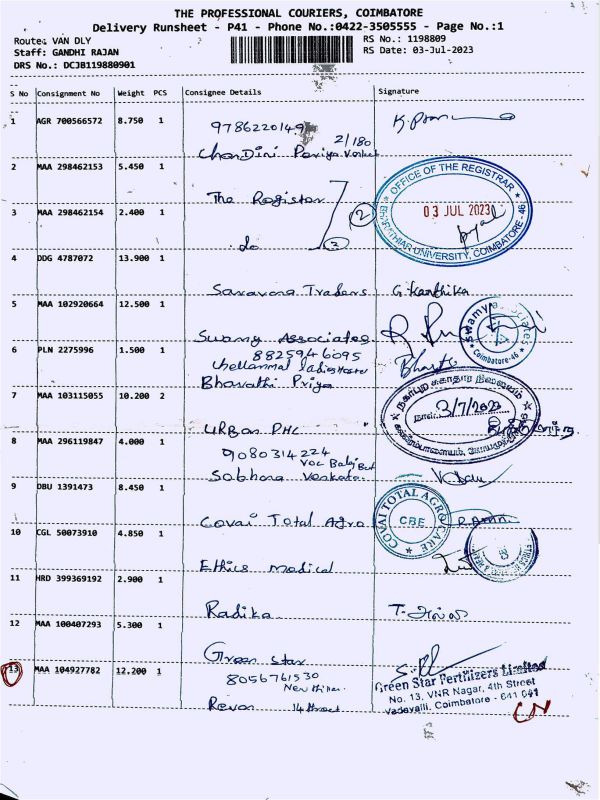 THE PROFESSIONAL COURIERS, COIMBATORE
Delivery Runsheet - P41 - Phone No.:0422-3505555 - Page No.:1
Route: VAN DLY
RS No.: 1198809
Staff: GANDHI RAJAN
RS Date: 03-Jul-2023
DRS No.: DCJB119880901
S No Consignment No Weight PCS Consignee Details Signature
1 AGR 700566572 8.750 1
9786220149
2/180
Chandini Periya
2 MAA 298462153 5.450 1
The Registar
OFFICE OF THE REGISTRAR
03 JUL 2023
BHARATHIAR UNIVERSITY, COIMBATORE - 46
2
3 MAA 298462154 2.400 1
do
4 DDG 4787072 13.900 1
Saravana Traders G. Karthika
5 MAA 102920664 12.500 1
Swamy Associates
Swamy Associates
Coimbatore-46
6 PLN 2275996 1.500 1
8825946095
Chellammal ladies Hostel
Bharathi Priya
7 MAA 103115055 10.200 2
URBan PHC
நகர்புற சுகாதார நிலையம்
நாள் 3/7/2023
8 MAA 296119847 4.000 1
9080314224
VOC
Sobhana Venkata
9 DBU 1391473 8.450 1
Covai Total Agro
COVAI TOTAL AGRO CARE
CBE
10 CGL 50073910 4.850 1
Ethics Medical
11 HRD 399369192 2.900 1
Radika
12 MAA 100407293 5.300 1
Green Star
13 MAA 104927782 12.200 1
8056761530
Green Star Fertilizers Limited
No. 13, VNR Nagar, 4th Street
Vadavalli, Coimbatore - 641 041
Revar
CN